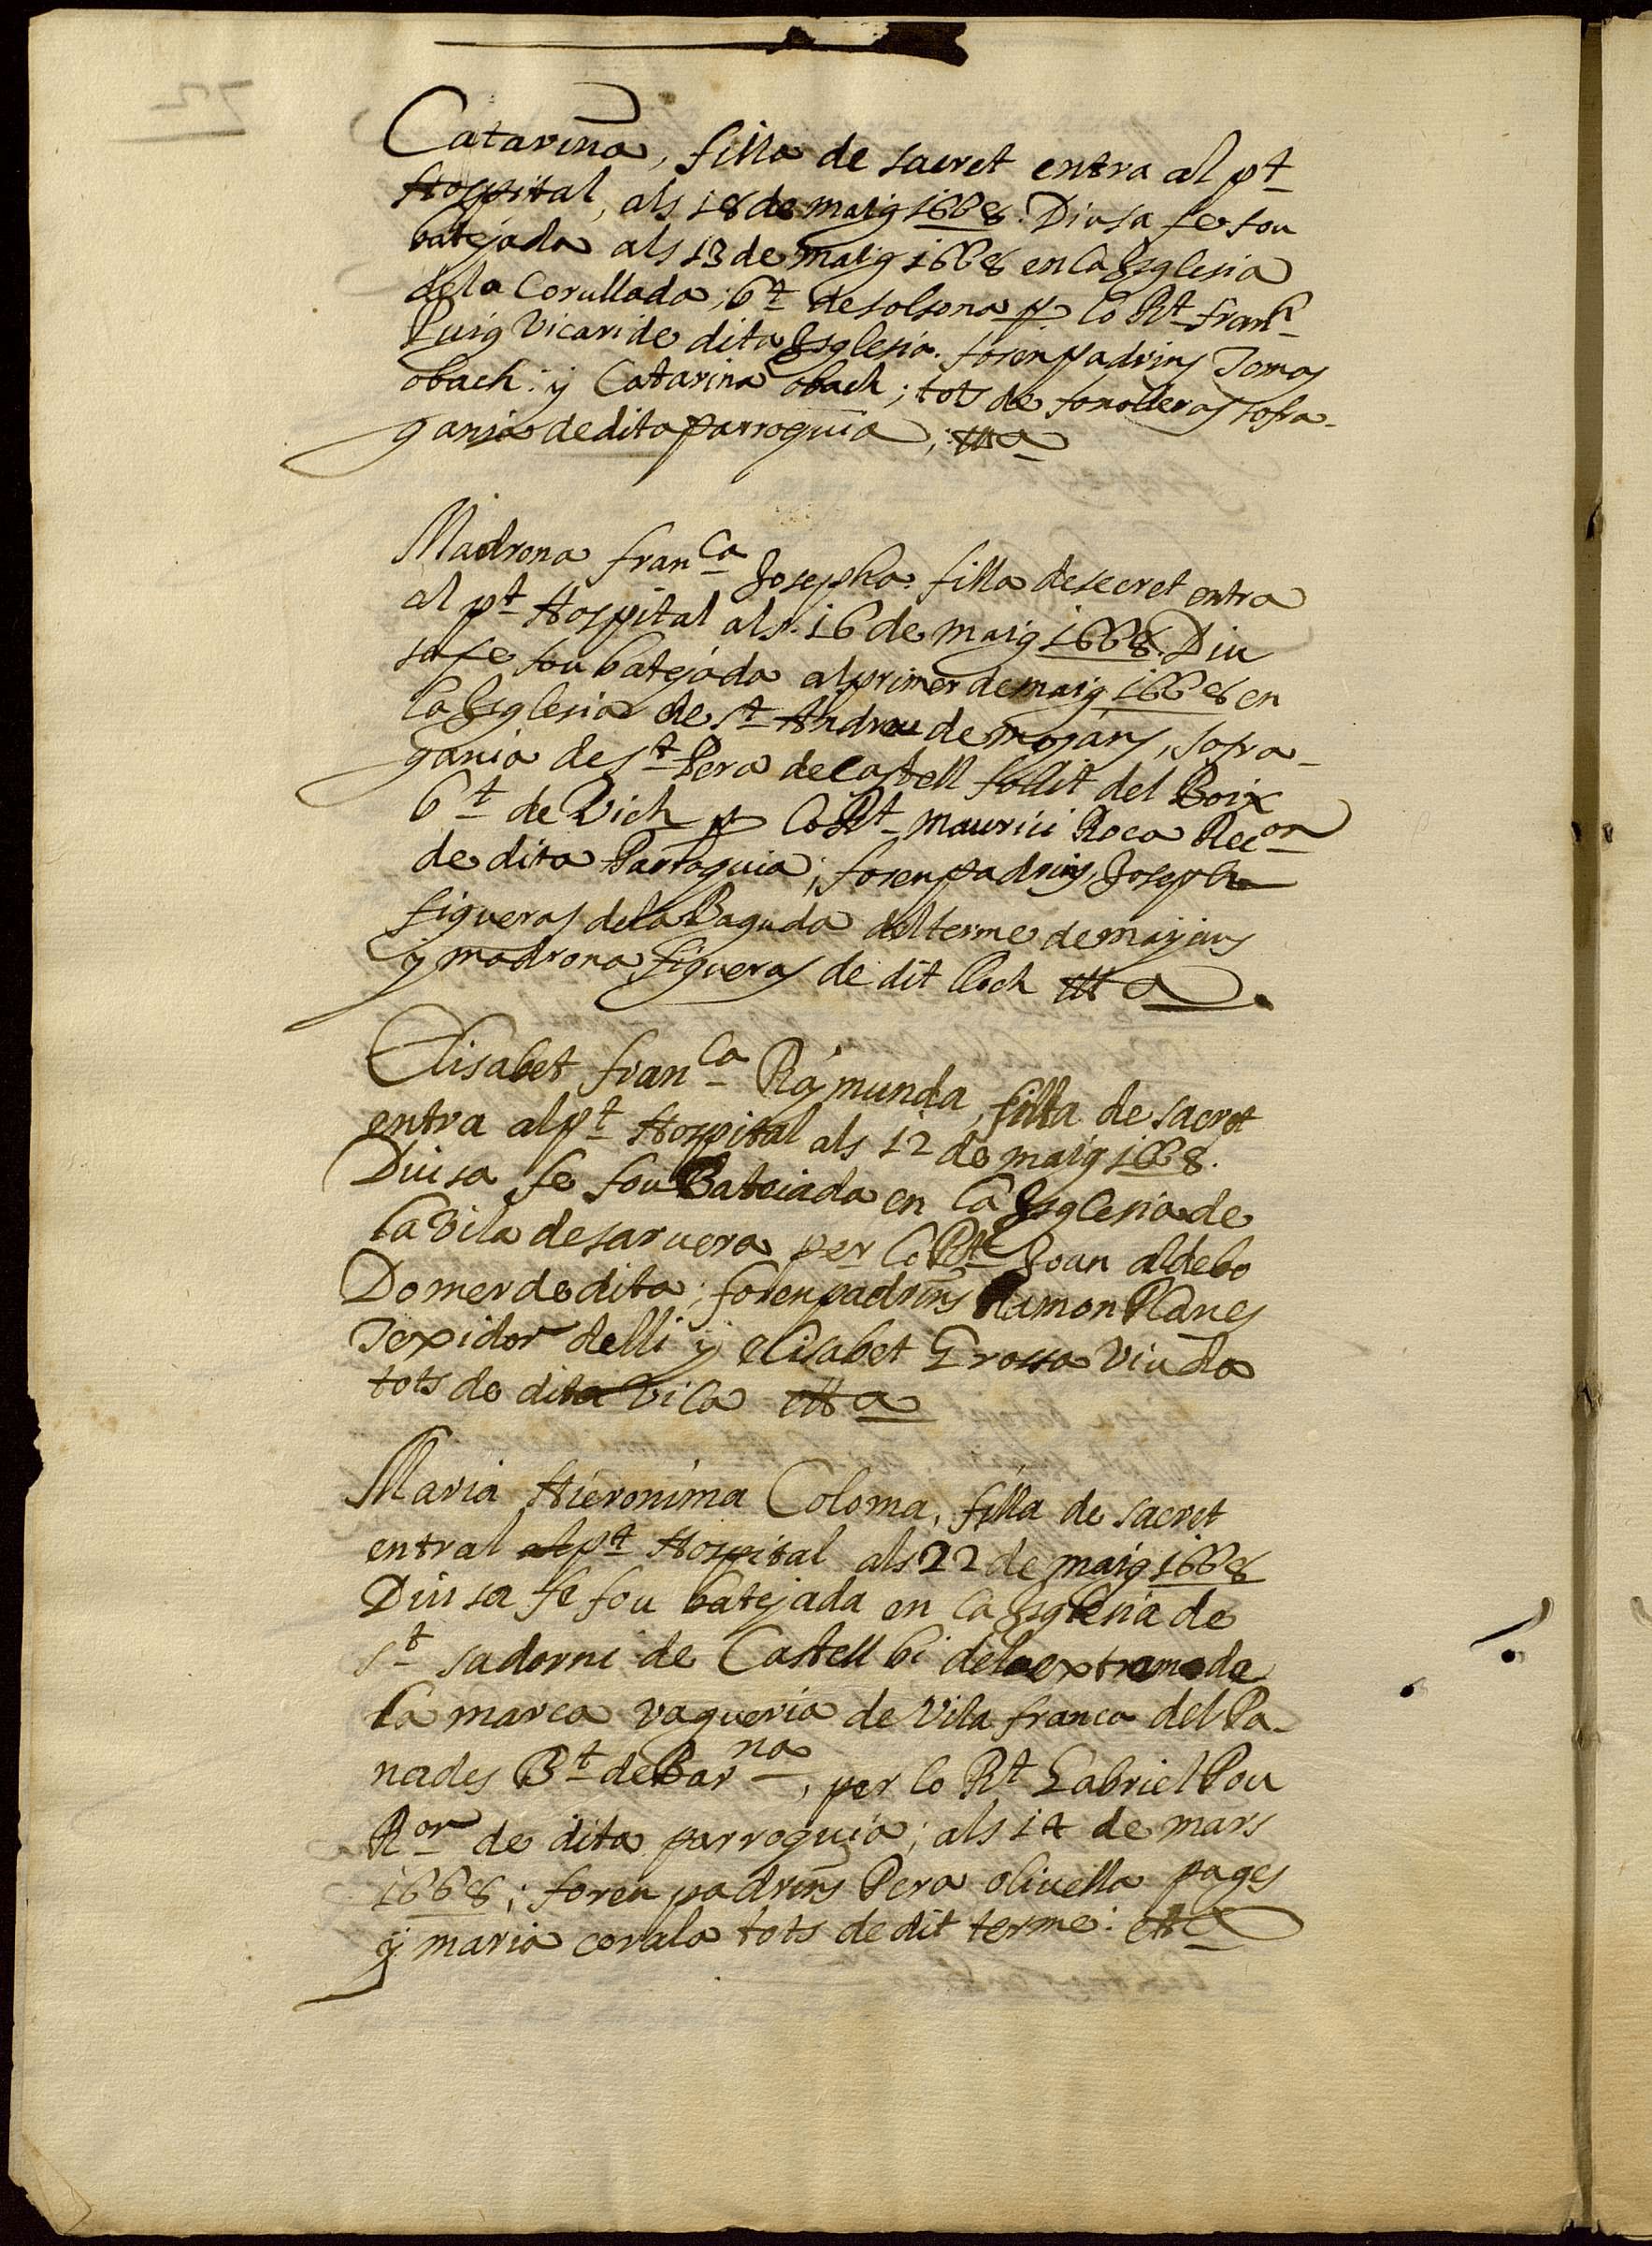 Catarina, filla de sacret entra al pt
Hospital, als 18 de maig 1668. Diu sa fe fou
batejada als 13 de maig 1668 en la Isglesia
de la Corullada; bt de solsona p lo Rt Franch
Puig Vicari de dita Isglesia. foren padrins Tomas
obach: y Catarina obach; tots de fonolleras sofra-
gania de dita parroquia;
Madrona franca Josepha filla de secret entra
al pt Hospital als 16 de maig 1668. Diu
sa fe fou batejada al primer de maig 1668 en
la Isglesia de st Andreu de mojans, sofra-
gania de st Pera de Castell follit del Boix
bt de Vich p lo Rt maurici Roca Recor
de dita Parroquia; foren padrins, Joseph
figueras de la Baguda del terme de majans
y madrona figueras de dit lloch
Elisabet franca Raymunda, filla de sacret
entra al pt Hospital als 12 de maig 1668.
Diu sa fe fou Bateiada en la Isglesia de
la Vila de saruera per lo Rt Joan aldebo
Domer de dita; foren padrins Ramon Planes
Texidor de lli y elisabet Grossa Viuda
tots de dita Vila
Maria Hieronima Coloma, filla de sacret
entra al pt Hospital als 22 de maig 1668
Diu sa fe fou batejada en la Isglesia de
st sadorni de Castellbi de la extrem de
la marca vagueria de Vila franca del Pa-
nades Bt de Barna, per lo Rt Gabriel Pou
Ror de dita parroquia; als 14 de mars
1668; foren padrins Pera oliuella pages
y maria corala tots de dit terme: